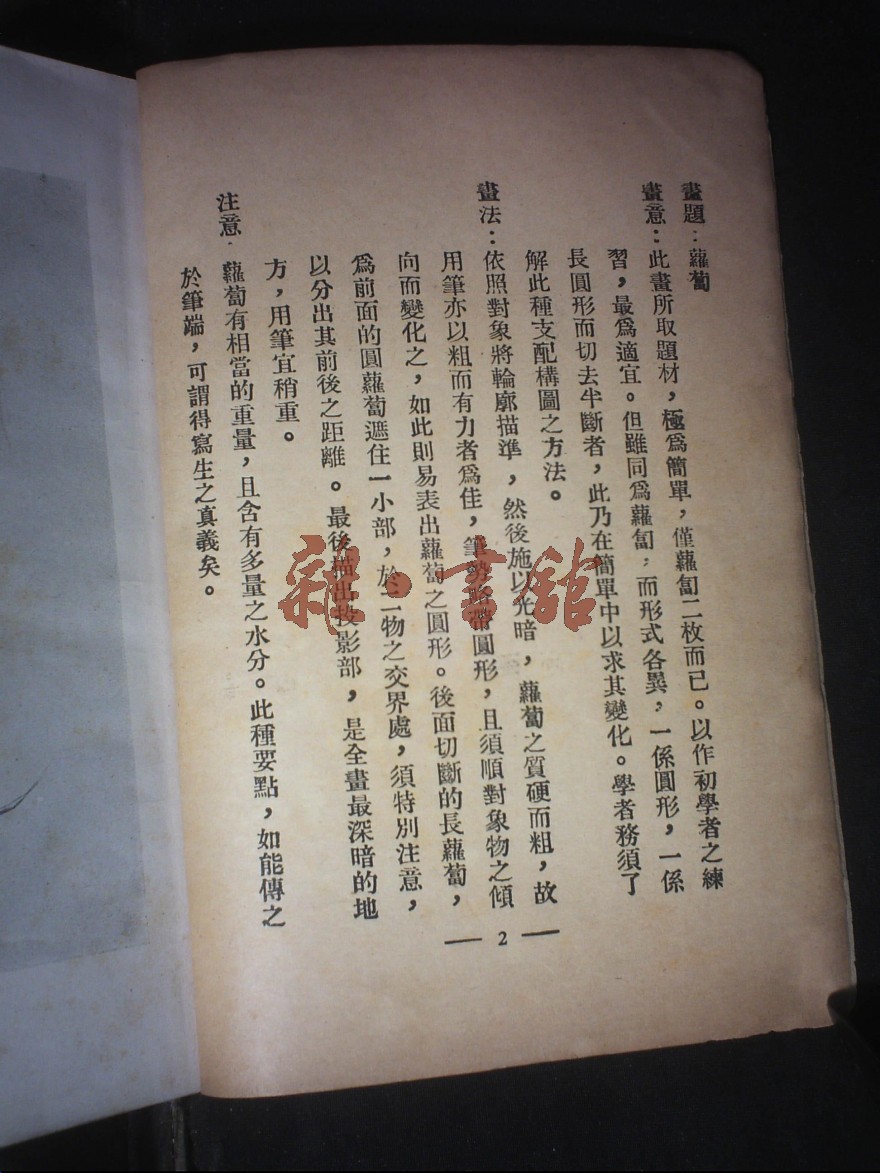 畫題：蘿蔔
畫意：此畫所取題材，極爲簡單，僅蘿匐二枚而已。以作初學者之練
習，最爲適宜。但雖同爲蘿匐，而形式各異，一係圓形，一係
長圓形而切去半斷者，此乃在簡單中以求其變化。學者務須了
解此種支配構圖之方法。
畫法：依照對象將輪廓描準，然後施以光暗，蘿蔔之質硬而粗，故
用筆亦以粗而有力者爲佳，筆勢略帶圓形，且須順對象物之傾
向而變化之，如此則易表出蘿蔔之圓形。後面切斷的長蘿蔔，
爲前面的圓蘿蔔遮住一小部，於二物之交界處，須特別注意，
以分出其前後之距離。最後描出投影部，是全畫最深暗的地
方，用筆宜稍重。
注意·蘿蔔有相當的重量，且含有多量之水分。此種要點，如能傳之
於筆端，可謂得寫生之真義矣。
— 2 —
雜·書館